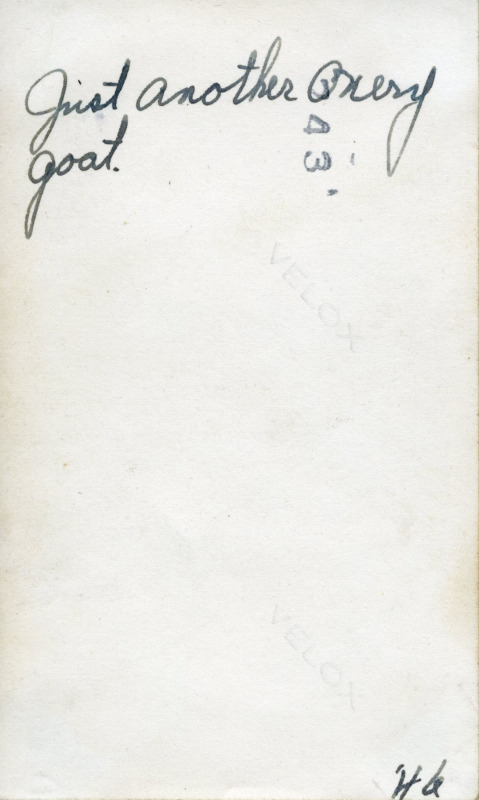 Just another Onery
goat.
343
VELOX
VELOX
'46